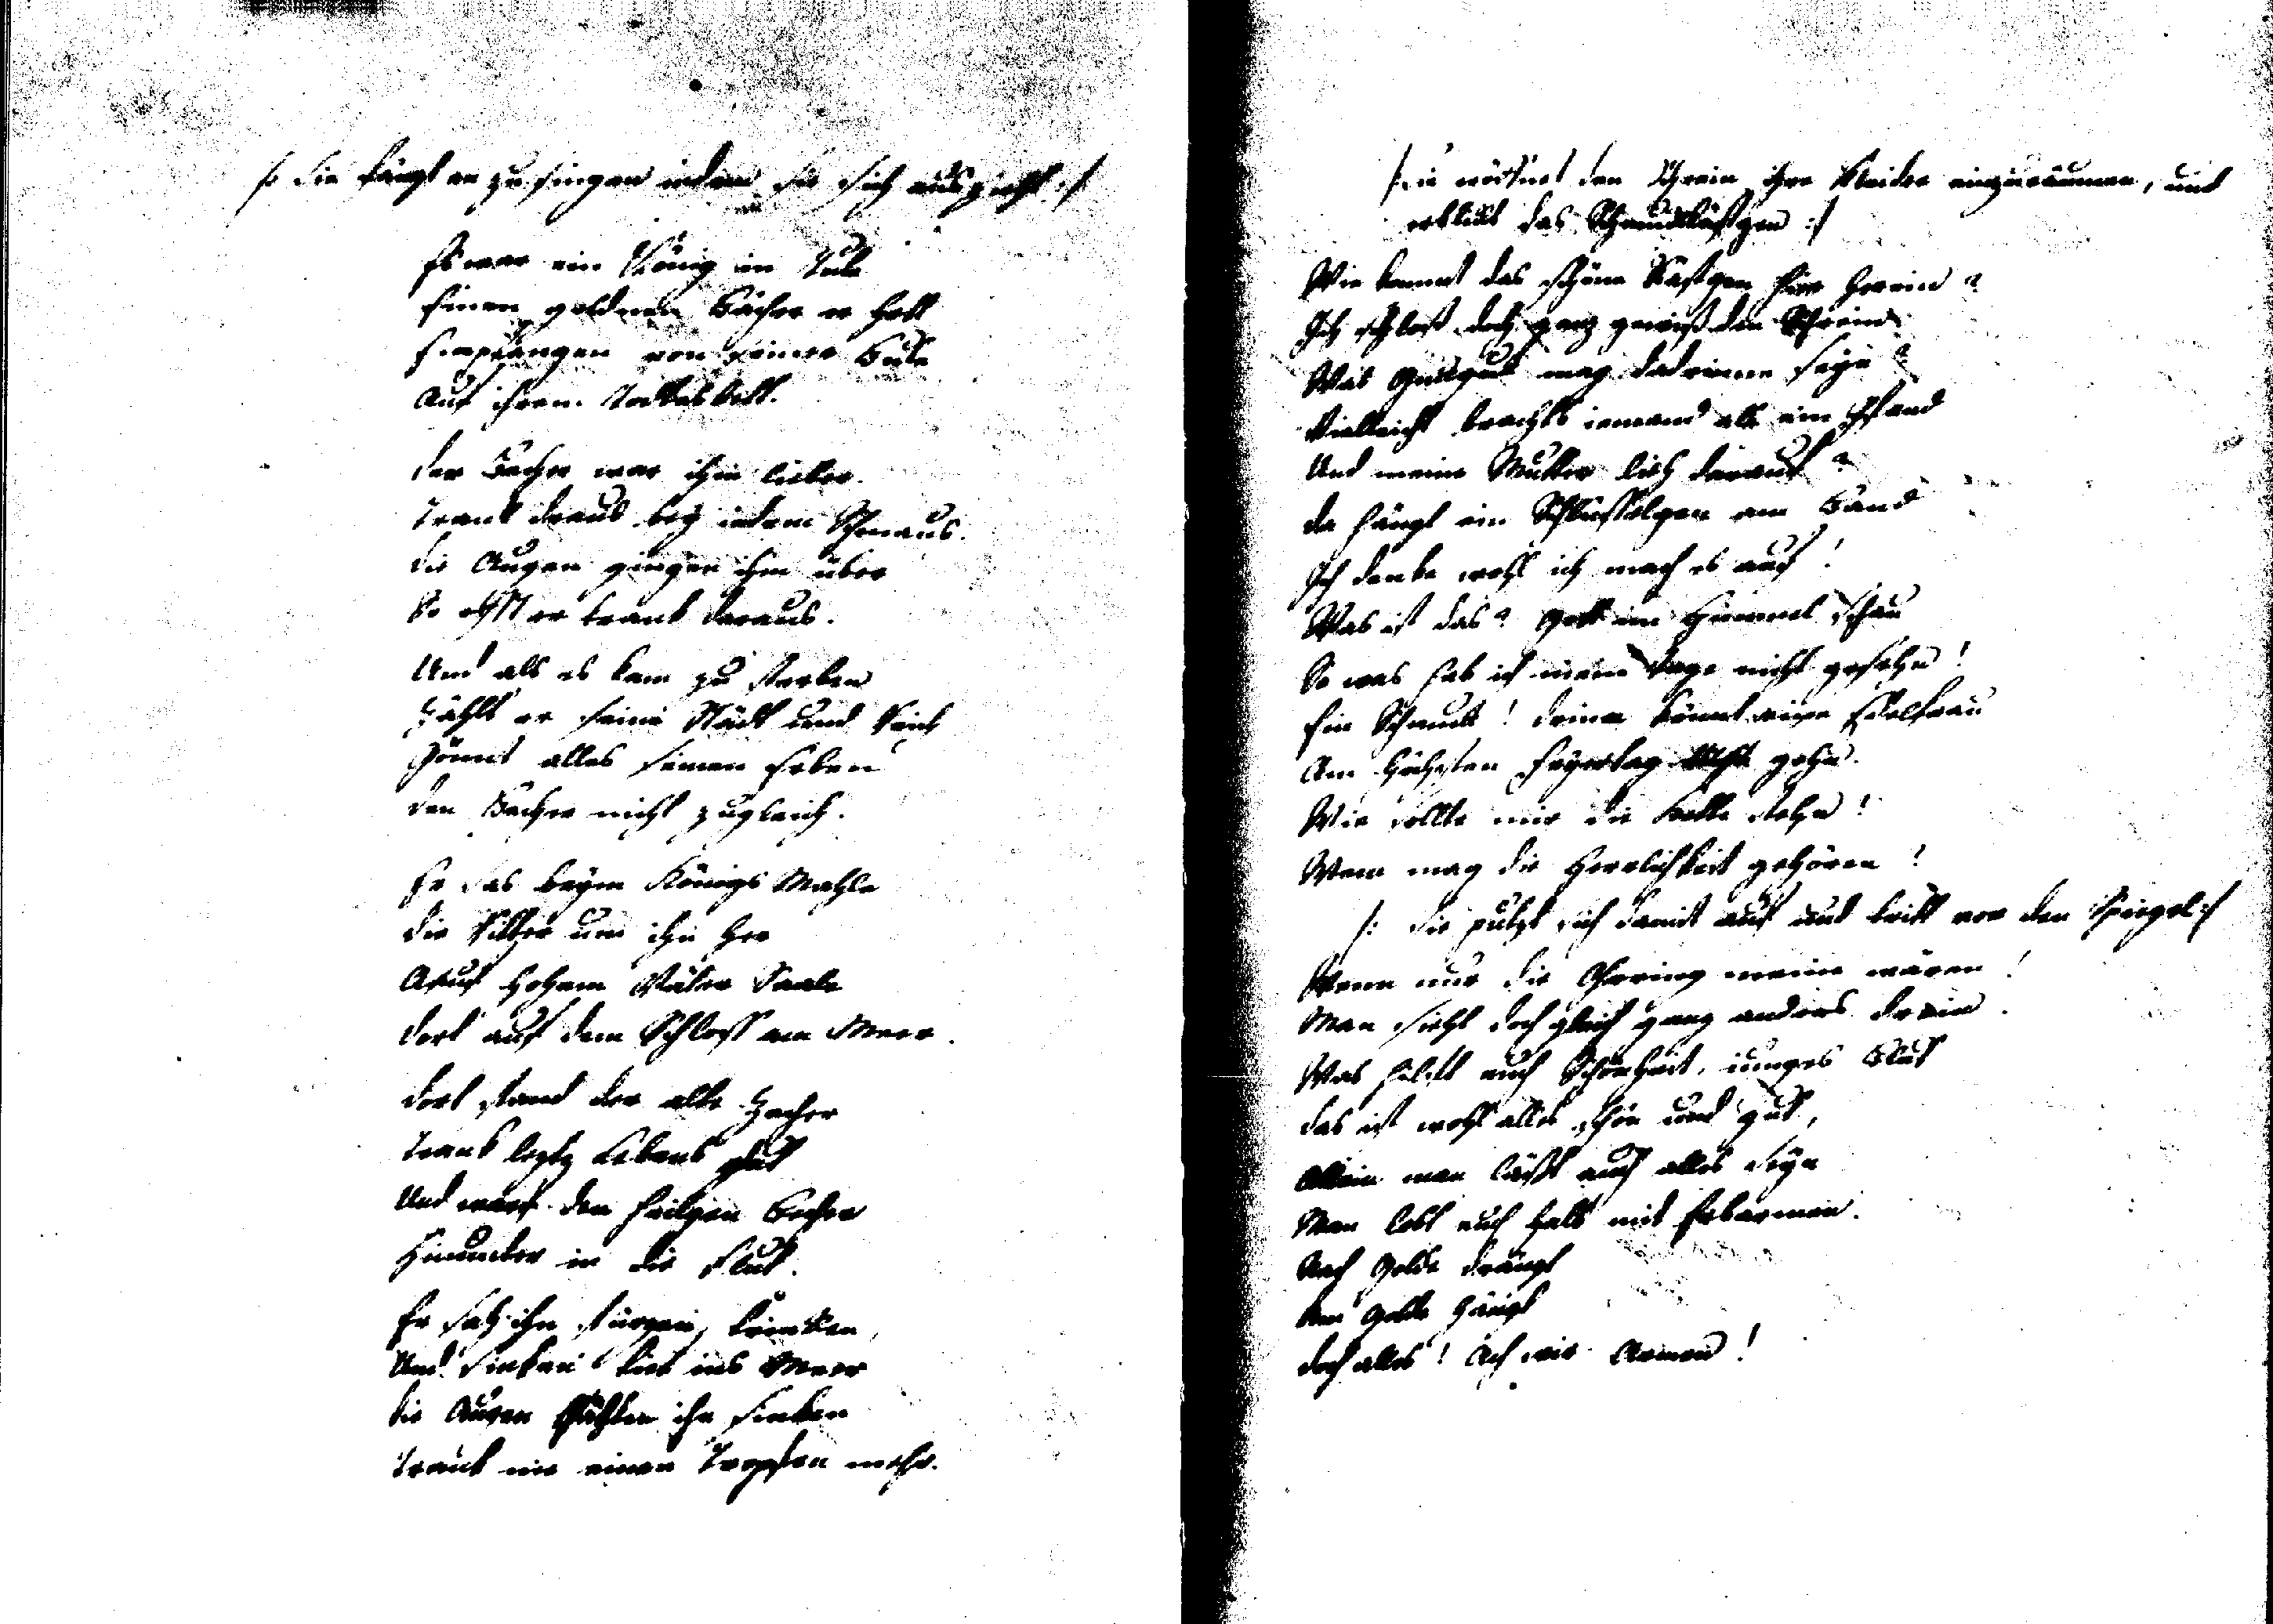 /: Sie fängt an zu singen indem sie sich auszieht :/
Es war ein König in Tule
Einen goldnen Bächer er hett
Empfangen von seiner Bule
Auf ihrem Todtesbett.
Der Becher war ihm lieber.
Tranck draus bey iedem Schmaus.
Die Augen gingen ihm über
So offt er tranck daraus.
Und als es kam zu sterben
Zählt er seine Städt und Reich
Gönnt alles seinen Erben
Den Becher nicht zugleich.
Er sas beym Königs Mahle
Die Ritter um ihn her
Auf hohem Väter Saale
Dort auf dem Schloss am Meer.
Dort stand der alte Zecher
Tranck lezte Lebens glut
Und warf den heilgen Becher
Hinunter in die Flut.
Er sah ihn stürzen, trincken,
Und sincken tief ins Meer
Die Augen thäten ihn sincken
Tranck nie einen Tropfen mehr.
/: Sie eröffnet den Schrein ihre Kleider einzuräumen, und
erblickt das Schmuckkästgen :/
Wie kommt das schöne Kästgen hier herein?
Ich schloss doch ganz gewiss den Schrein.
Was Guckguck mag dadrinne seyn?
Vielleicht brachts iemand als ein Pfand
Und meine Mutter lieh darauf?
Da hängt ein Schlüsselgen am Band
Ich dencke wohl ich mach es auf!
Was ist das? Gott im Himmel schau
So was hab ich mein Tage nicht gesehn!
Ein Schmuck! Drinn könnt eine Edelfrau
Am höchsten Feyertag gehn.
Wie sollte mir die Kette stehn!
Wem mag die Herrlichkeit gehören?
/: Sie putzt sich damit auf und tritt vor den Spiegel :/
Wenn nur die Ohrring meine wären!
Man sieht doch gleich ganz anders drein.
Was hilft euch Schönheit, iunges Blut
Das ist wohl alles schön und gut,
Allein man lässts auch alles seyn
Man lobt euch halb mit Erbarmen.
Nach Golde drängt
Am Golde hängt
Doch alles! Ach wir Armen!